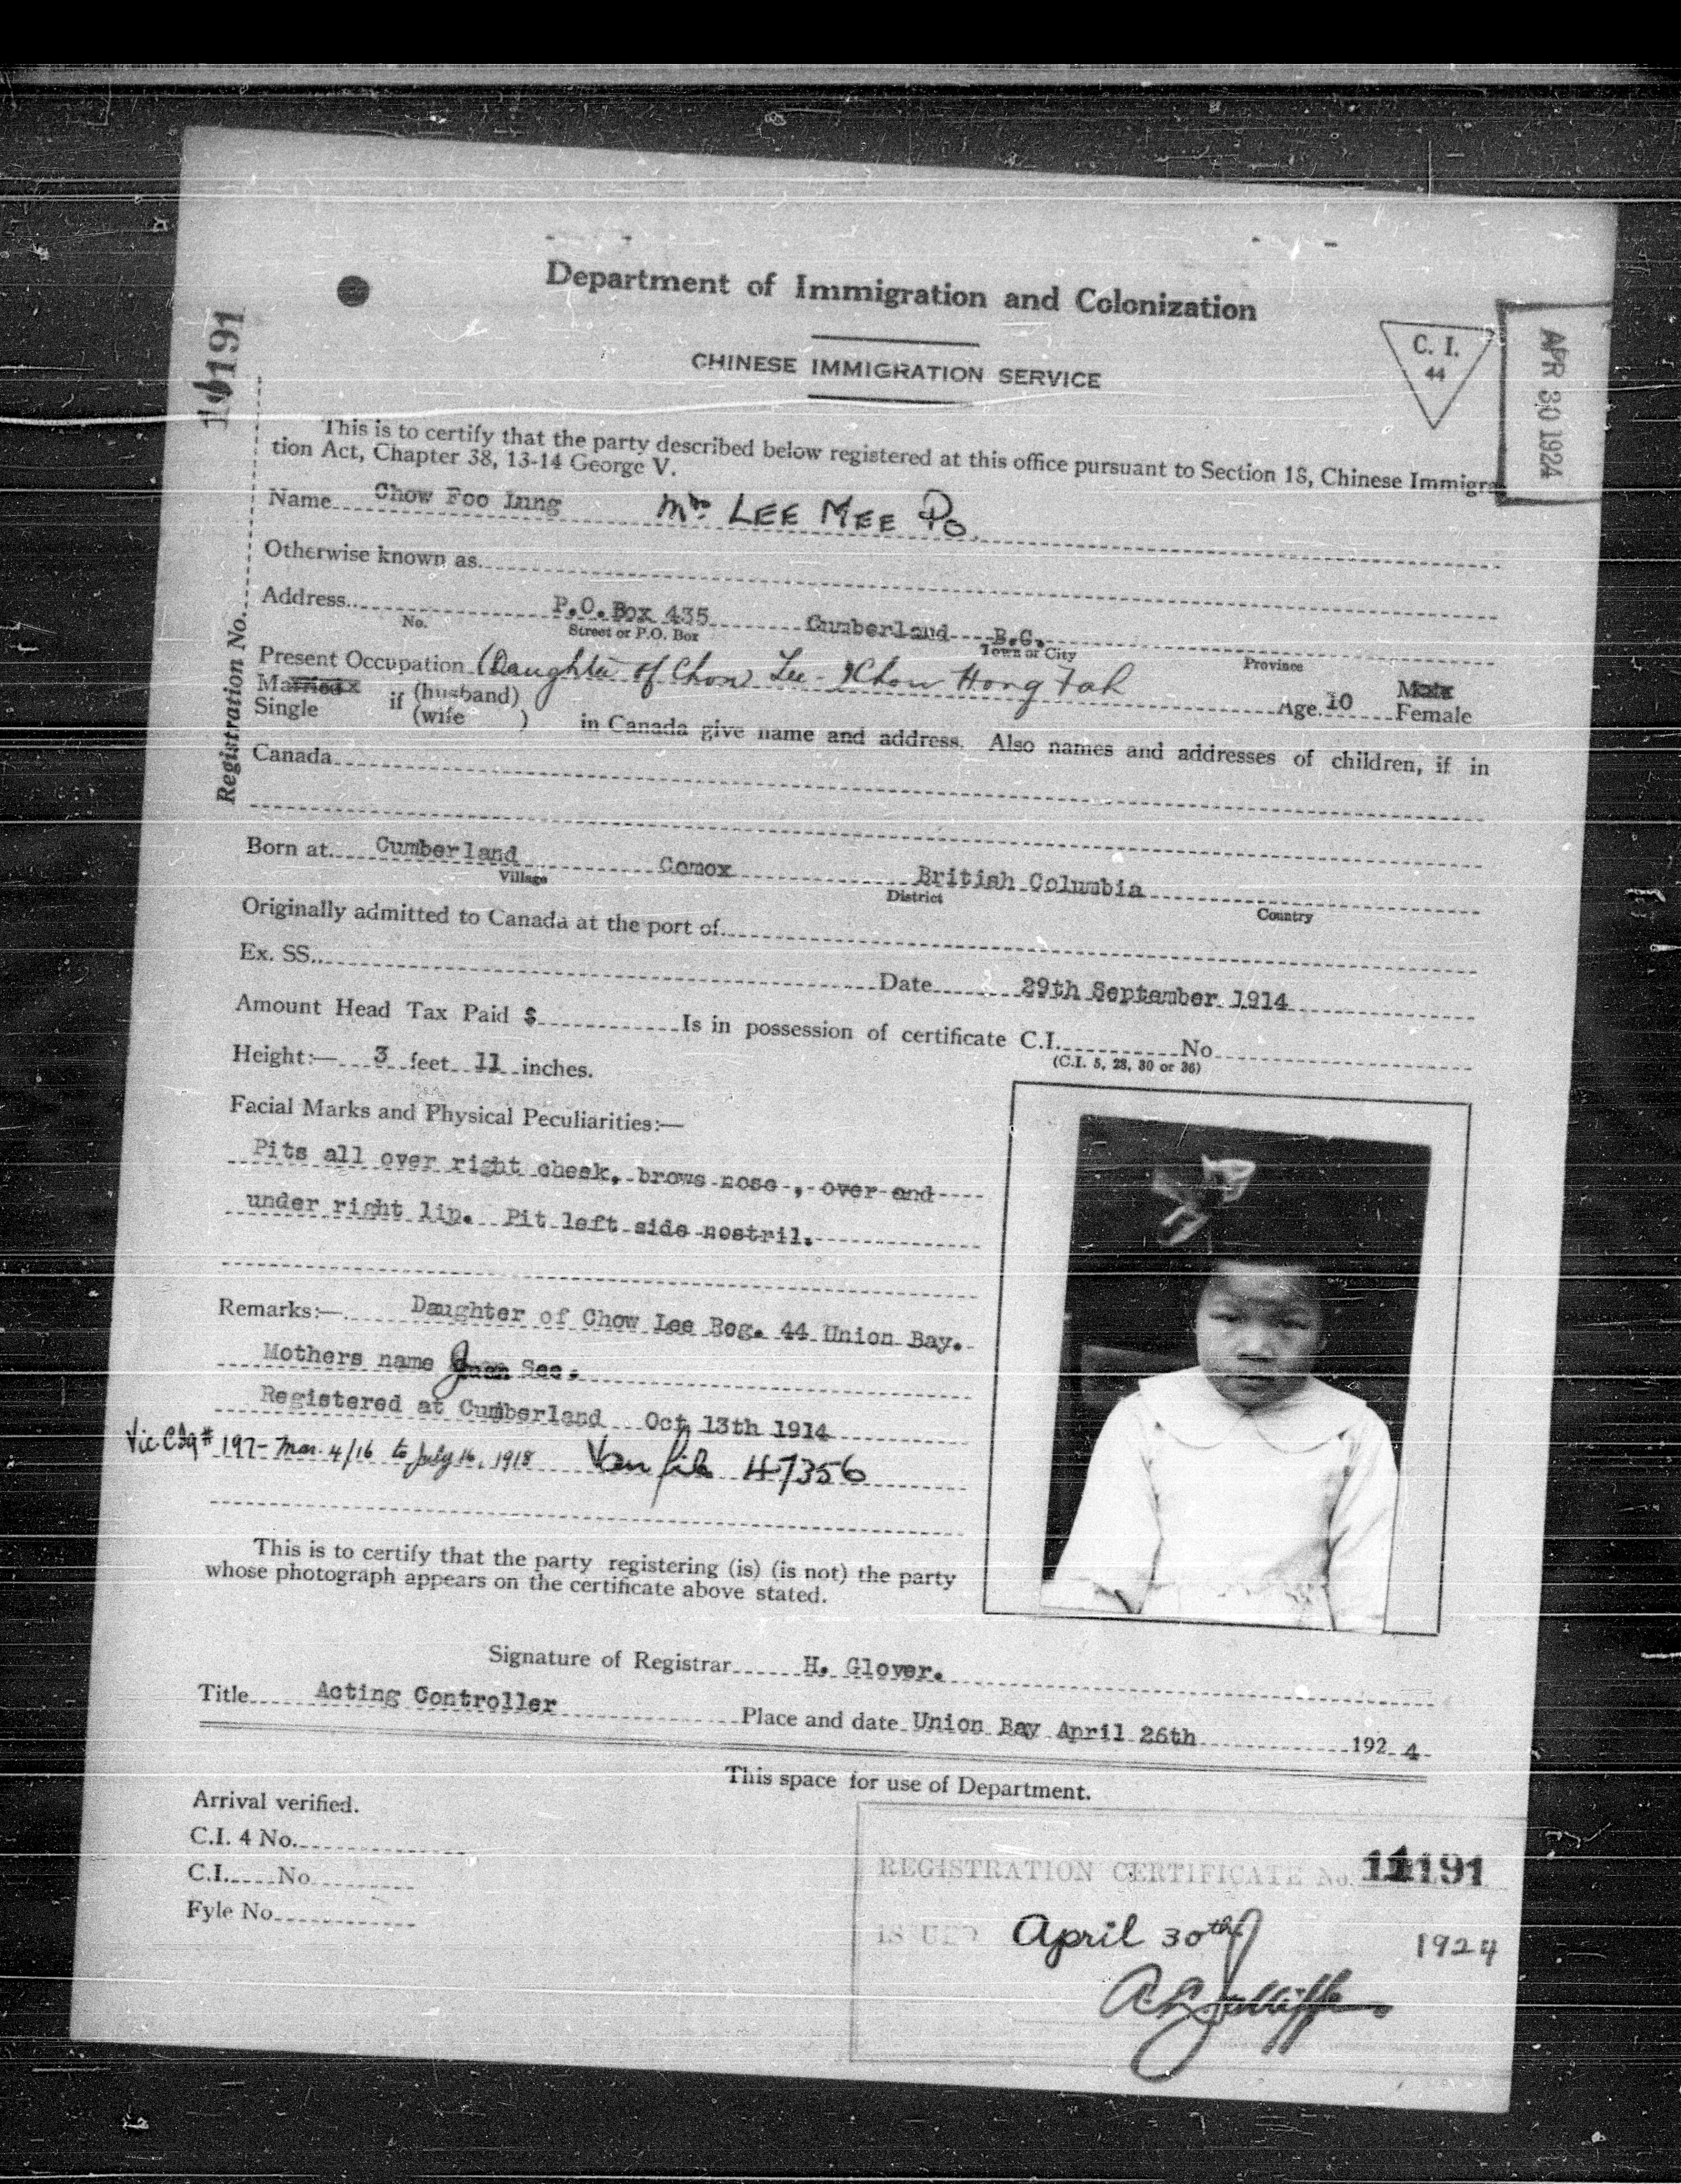 Department of Immigration and Colonization
CHINESE IMMIGRATION SERVICE
C. I.
44
APR 30 1924
11191
Registration No.
This is to certify that the party described below registered at this office pursuant to Section 18, Chinese Immigra
tion Act, Chapter 38, 13-14 George V.
Name Chow Foo Lung Mrs LEE MEE PO.
Otherwise known as
Address P.O. Box 435 Cumberland B.C.
No. Street or P.O. Box Town or City Province
Present Occupation (Daughter of Chow Lee - Chow Hong Fah Age 10 Male
Married Single if (husband) (wife ) in Canada give name and address. Also names and addresses of children, if in Female
Canada
Born at Cumberland Comox British Columbia
Village District Country
Originally admitted to Canada at the port of
Ex. SS. Date 29th September 1914
Amount Head Tax Paid $ Is in possession of certificate C.I. No
(C.I. 5, 28, 30 or 36)
Height:— 3 feet 11 inches.
Facial Marks and Physical Peculiarities:—
Pits all over right cheek, brows nose , over and
under right lip. Pit left side nostril.
Remarks:— Daughter of Chow Lee Reg. 44 Union Bay.
Mothers name See.
Registered at Cumberland Oct 13th 1914
197 - Mar. 4/16 to July 16, 1918 Van file 47356
This is to certify that the party registering (is) (is not) the party
whose photograph appears on the certificate above stated.
Signature of Registrar H. Glover.
Title Acting Controller Place and date Union Bay April 26th 1924
This space for use of Department.
Arrival verified.
C.I. 4 No.
C.I. No
Fyle No
REGISTRATION CERTIFICATE No. 11191
ISSUED April 30th 1924
A.L. Jolliffe